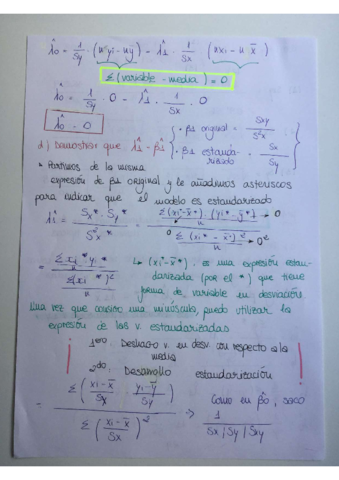 λ̂0 = 1/Sy · (nȳi - nȳ) - λ̂1 · 1/Sx · (nx̄i - n x̄)
Σ(variable - media) = 0
λ̂0 = 1/Sy · 0 - λ̂1 · 1/Sx · 0
λ̂0 = 0
d) Demostrar que λ̂1 = β̂1 · Sx/Sy
· β1 original = Sxy/S²x
· β1 estandarizado
* Partimos de la misma
expresión de β1 original y le añadimos asteriscos
para indicar que el modelo es estandarizado
λ̂1 = Sx* · Sy* / S²x* = Σ(xi* - x̄*) · (yi* - ȳ*) / n → 0
Σ(xi* - x̄*)² / n → 0²
= Σ xi* yi* / n
Σ(xi*)² / n
↳ (xi* - x̄*) : es una expresión estan-
darizada (por el *) que tiene
forma de variable en desviación.
Una vez que consigo una minúscula, puedo utilizar la
expresión de las v. estandarizadas
1ero Deshago v. en desv. con respecto a la
media
2do Desarrollo estandarización
= Σ (xi - x̄ / Sx) (yi - ȳ / Sy)
Σ (xi - x̄ / Sx)²
Como en β0, saco
⇒ 1
Sx / Sy / Sxy